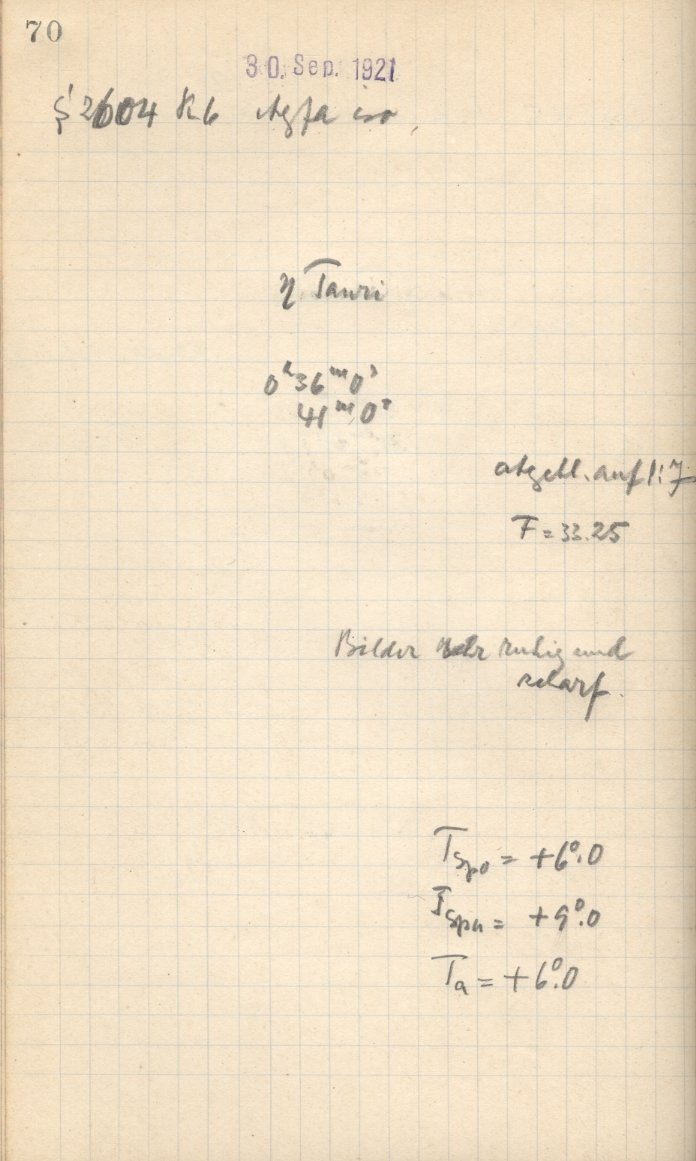 70
30. Sep. 1921
S 2604 R6 Agfa iso
η Tauri
0ʰ36ᵐ0ˢ
41ᵐ0ˢ
abgebl. auf 1:7
F = 33.25
Bilder sehr ruhig und
scharf.
T_Spo = +6°.0
T_Spu = +9°.0
T_a = +6°.0